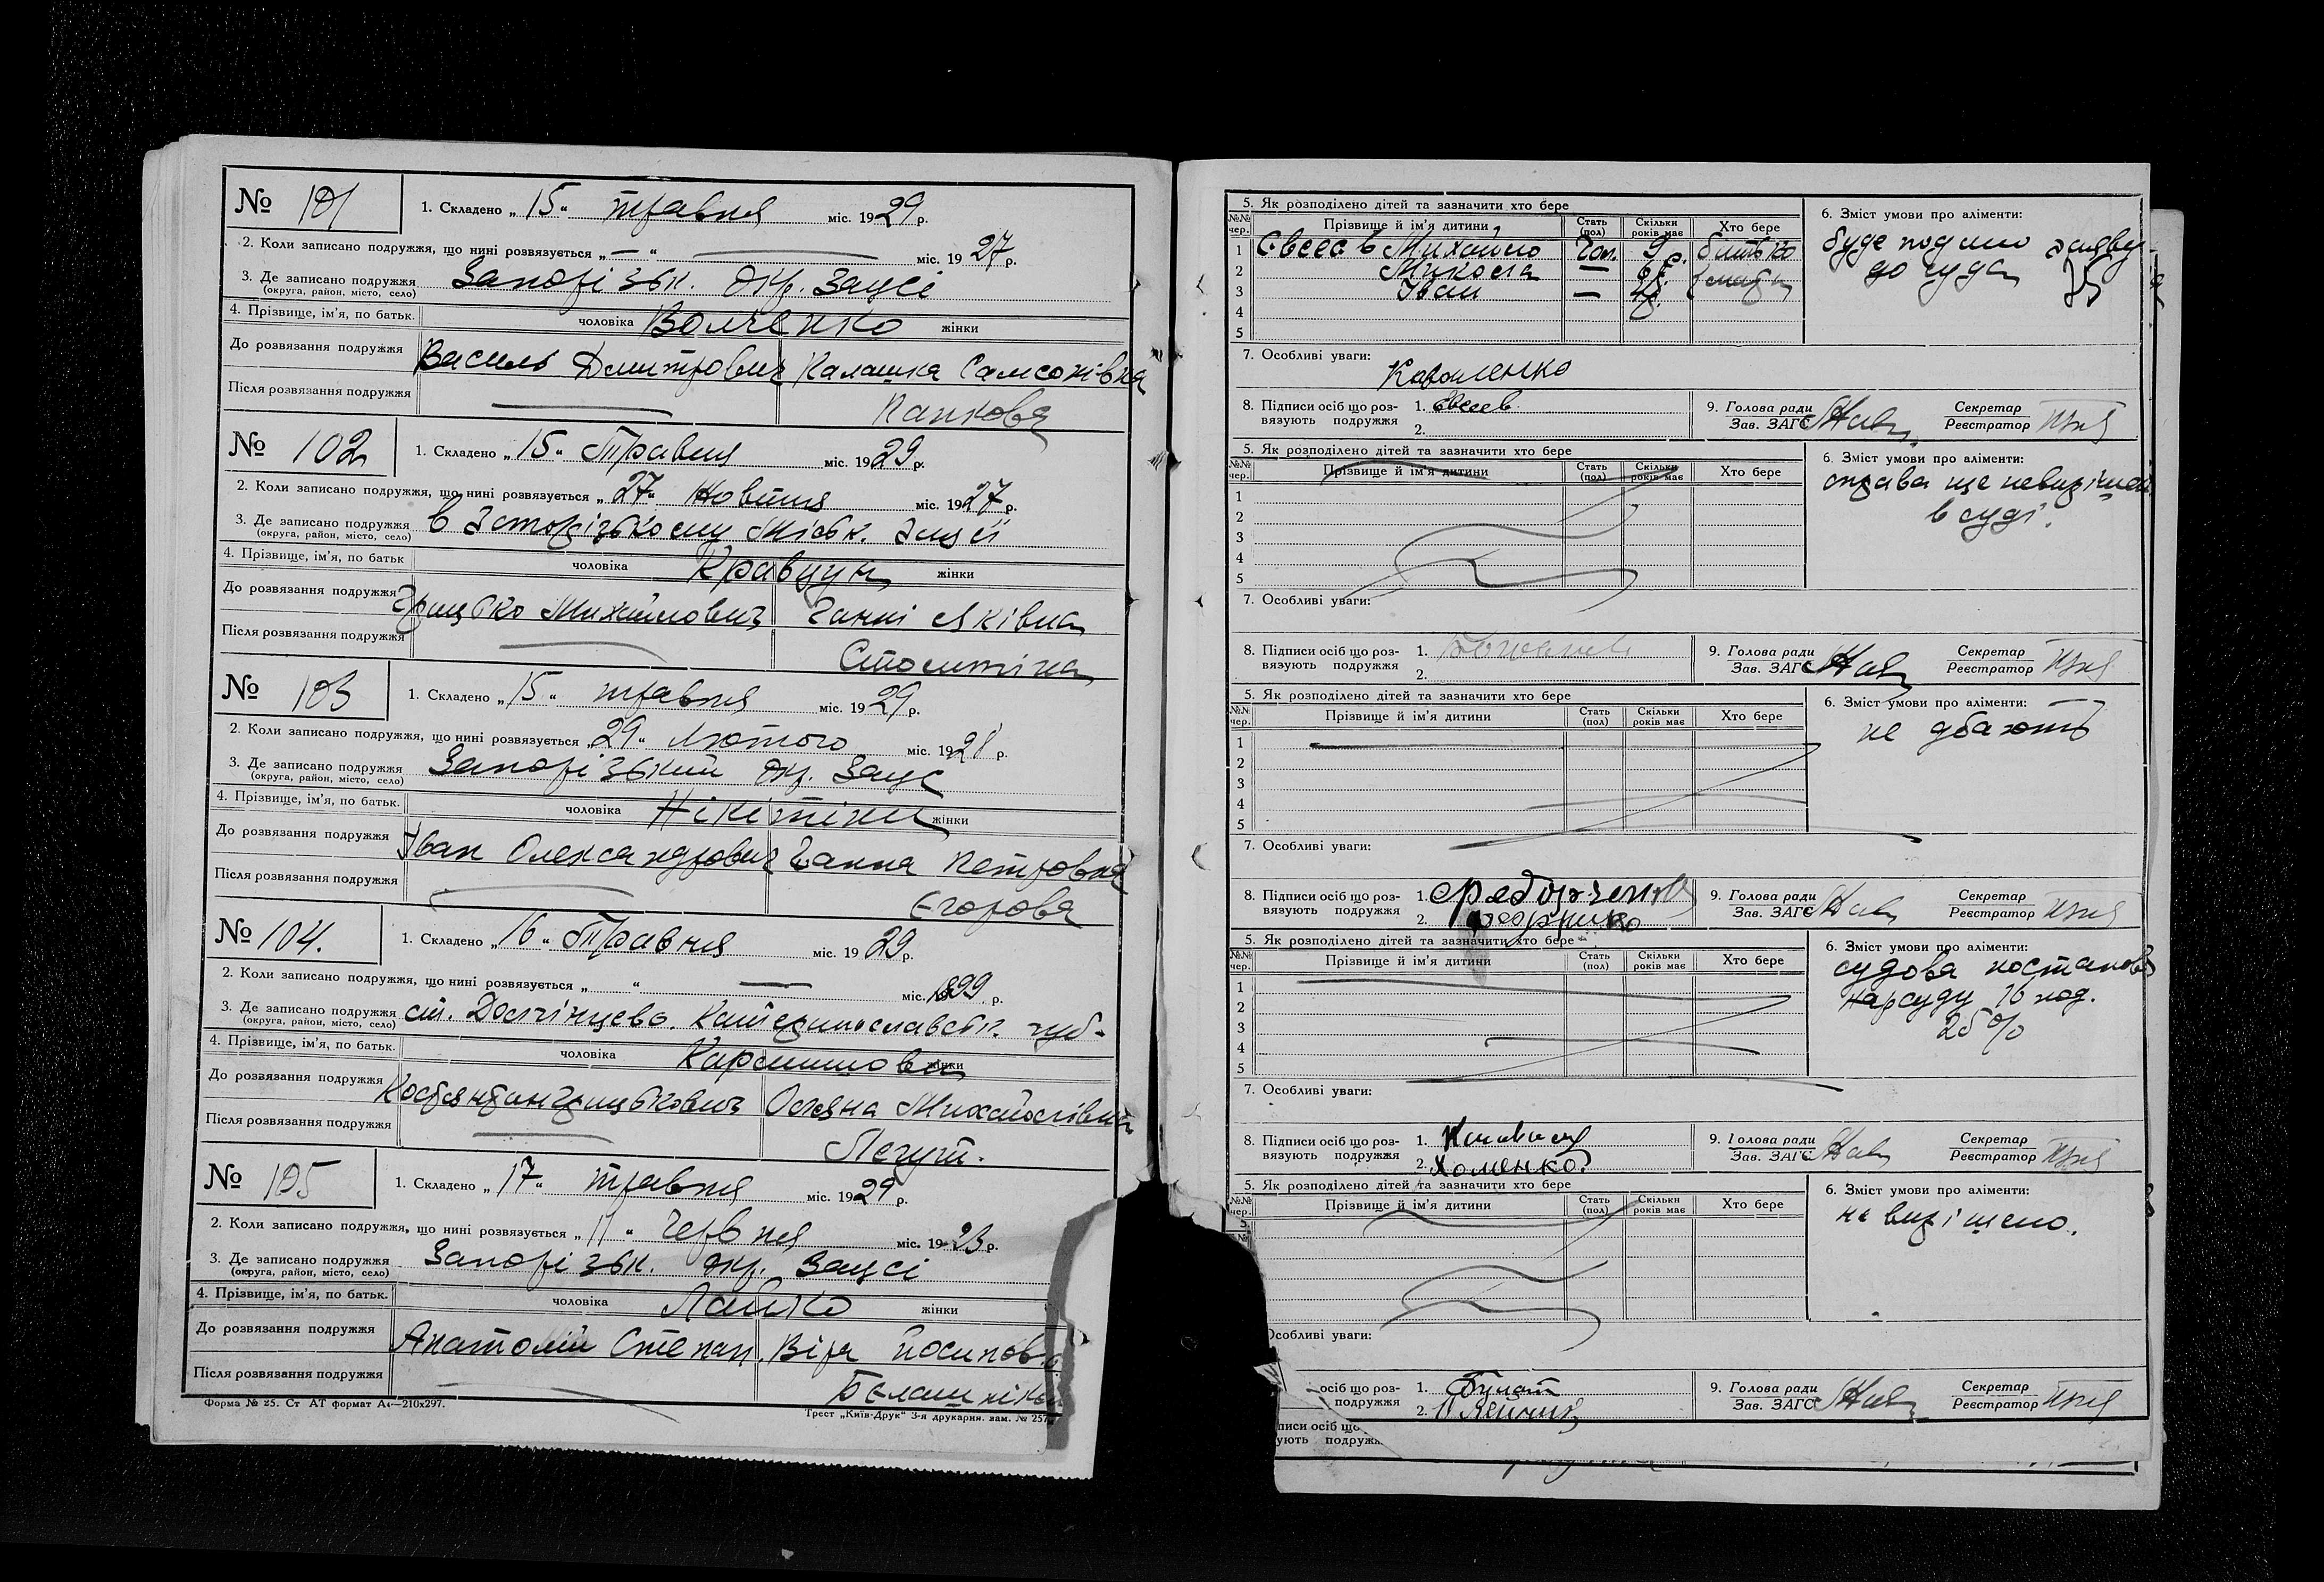 № 101
1. Складено „ 15 “ травня міс. 1929 р.
2. Коли записано подружжя, що нині розвязується „ — “ — міс. 1927 р.
3. Де записано подружжя Запорізьк. окр. Загсі
(округа, район, місто, село)
4. Прізвище, ім'я, по батьк. чоловіка Волченко жінки
До розвязання подружжя Василь Дмитрович Калашка Самсонівна
Після розвязання подружжя — Панкова
№ 102
1. Складено „ 15 “ Травня міс. 1929 р.
2. Коли записано подружжя, що нині розвязується „ 27 “ Жовтня міс. 1927 р.
3. Де записано подружжя в Запорізькому Міськ. Загсі
(округа, район, місто, село)
4. Прізвище, ім'я, по батьк чоловіка Кравцун жінки
До розвязання подружжя Грицько Михайлович Ганні Яківна
Після розвязання подружжя —
№ 103
1. Складено „ 15 “ травня міс. 1929 р.
2. Коли записано подружжя, що нині розвязується „ 29 “ Лютого міс. 1928 р.
3. Де записано подружжя Запорізький окр. Загс
(округа, район, місто, село)
4. Прізвище, ім'я, по батьк. чоловіка Нікітіни жінки
До розвязання подружжя Іван Олександрович Ганна Петровна
Після розвязання подружжя — Єгорова
№ 104.
1. Складено „ 16 “ Травня міс. 1929 р.
2. Коли записано подружжя, що нині розвязується „ “ — міс. 1899 р.
3. Де записано подружжя ст. Долгінцево. Катеринославськ. губ-
(округа, район, місто, село)
4. Прізвище, ім'я, по батьк. чоловіка жінки
До розвязання подружжя Костянтин Грицькович Оляна Михайлівна
Після розвязання подружжя — Легут.
№ 105
1. Складено „ 17 “ травня міс. 1929 р.
2. Коли записано подружжя, що нині розвязується „ 11 “ Червня міс. 1923 р.
3. Де записано подружжя Запорізьк. окр. Загсі
(округа, район, місто, село)
4. Прізвище, ім'я, по батьк. чоловіка Лайко жінки
До розвязання подружжя Анатолій Степан. Віра Йосипов.
Після розвязання подружжя —
Форма № 25. Ст АТ формат А4—210х297. Трест „Київ-Друк“ 3-я друкарня. зам. № 257
5. Як розподілено дітей та зазначити хто бере
№№ чер. Прізвище й ім'я дитини Стать (пол) Скільки років має Хто бере
1 Євсеєв Михайло Чол. 9 р. батько
2 Микола — 6 р.
3 Іван —
4
5
6. Зміст умови про аліменти:
буде подано заяву
до суда
7. Особливі уваги:
Коваленко
8. Підписи осіб що розвязують подружжя 1. Евсеев
2.
9. Голова ради Зав. ЗАГС Секретар Реєстратор
5. Як розподілено дітей та зазначити хто бере
№№ чер. Прізвище й ім'я дитини Стать (пол) Скільки років має Хто бере
1
2
3
4
5
6. Зміст умови про аліменти:
справа ще невирішена
в суді.
7. Особливі уваги:
8. Підписи осіб що розвязують подружжя 1.
2.
9. Голова ради Зав. ЗАГС Секретар Реєстратор
5. Як розподілено дітей та зазначити хто бере
№№ чер. Прізвище й ім'я дитини Стать (пол) Скільки років має Хто бере
1
2
3
4
5
6. Зміст умови про аліменти:
не дбають
7. Особливі уваги:
8. Підписи осіб що розвязують подружжя 1.
2.
9. Голова ради Зав. ЗАГС Секретар Реєстратор
5. Як розподілено дітей та зазначити хто бере
№№ чер. Прізвище й ім'я дитини Стать (пол) Скільки років має Хто бере
1
2
3
4
5
6. Зміст умови про аліменти:
судова постанова
нарсуду 16 под.
25%
7. Особливі уваги:
8. Підписи осіб що розвязують подружжя 1.
2. Хоменко
9. Голова ради Зав. ЗАГС Секретар Реєстратор
5. Як розподілено дітей та зазначити хто бере
№№ чер. Прізвище й ім'я дитини Стать (пол) Скільки років має Хто бере
6. Зміст умови про аліменти:
не вирішено.
Особливі уваги:
осіб що роз- подружжя 1. Булат
2.
9. Голова ради Зав. ЗАГС Секретар Реєстратор
писи осіб що
ують подруж